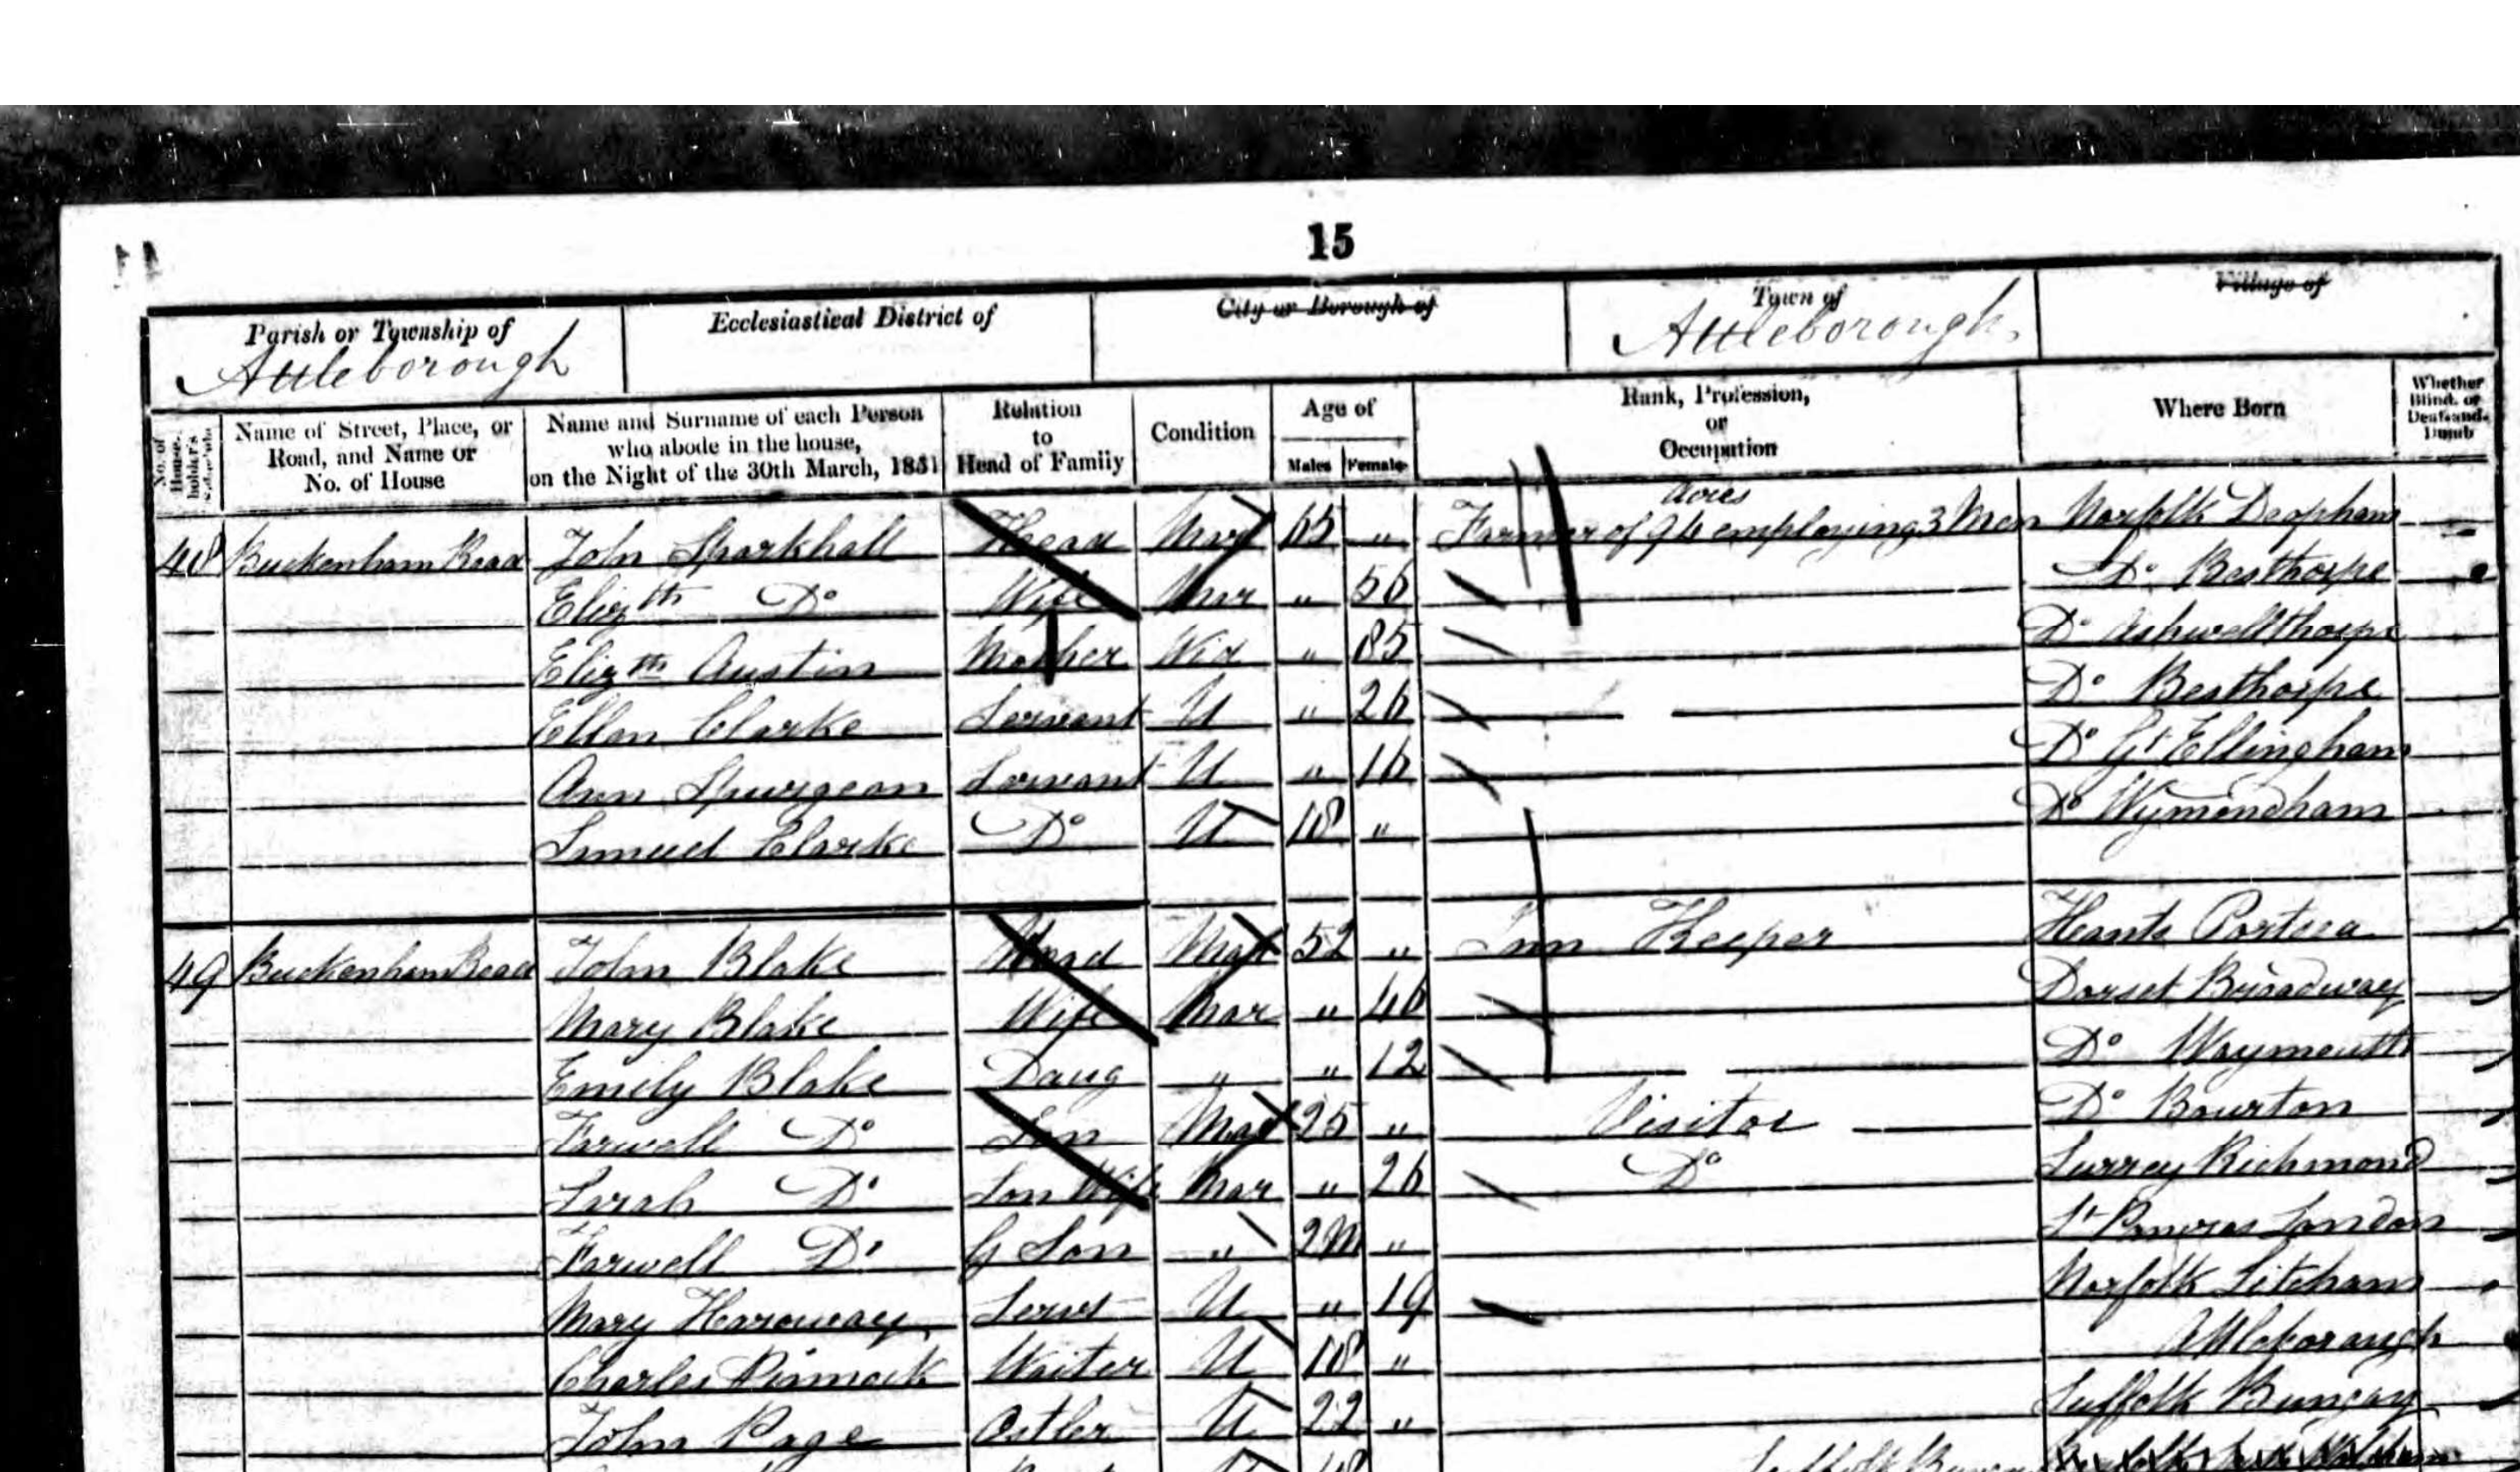 15
Parish or Township of
Attleborough
Ecclesiastical District of
City or Borough of
Town of
Attleborough
Village of
No. of House-holder's Schedule
Name of Street, Place, or Road, and Name or No. of House
Name and Surname of each Person who abode in the house, on the Night of the 30th March, 1851
Relation to Head of Family
Condition
Age of
Males Females
Rank, Profession, or Occupation
Where Born
Whether Blind, or Deaf-and-Dumb
48 Buckenham Road John Sparkhall Head Mar 65 " Farmer of 94 Acres employing 3 Men Norfolk Deopham
Elizth Do Wife Mar " 56 Do Besthorpe
Elizth Austin Mother Wid " 85 Do Ashwellthorpe
Ellen Clarke Servant U " 26 Do Besthorpe
Ann Spurgeon Servant U " 16 Do Gt Ellingham
Samuel Clarke Do U 18 " Do Wymondham
49 Buckenham Road John Blake Head Mar 52 " Inn Keeper Hants Portsea
Mary Blake Wife Mar " 46 Dorset Broadway
Emily Blake Daug " " 12 Do Waymouth
Farwell Do Son Mar 25 " Visitor Do Bourton
Sarah Do Son Wife Mar " 26 Do Surrey Richmond
Farwell Do G Son " 2m " St Pancras London
Mary Haroway Servt U " 19 Norfolk Litcham
Charles Pinnock Waiter U 18 " Attleborough
John Page Ostler U 22 " Suffolk Bungay
U 18 Suffolk